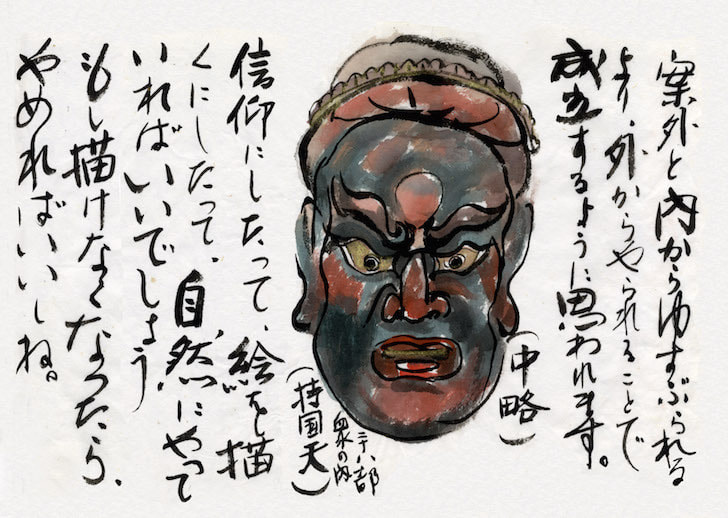 案外と内からゆすぶられる
より、外からやられることで
成立するように思われます。
(中略)
信仰にしたって、絵を描
くにしたって、自然にやって
いればいいでしょう。
もし描けなくなったら、
やめればいいしね。
二十八部
衆の内
(持国天)